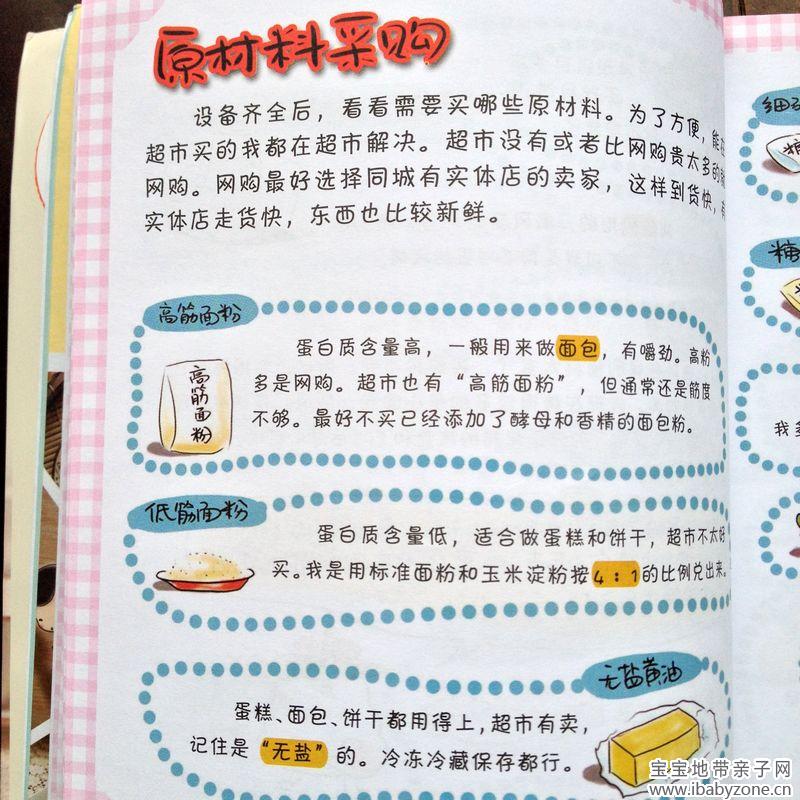 原材料采购
设备齐全后，看看需要买哪些原材料。为了方便，能在
超市买的我都在超市解决。超市没有或者比网购贵太多的都
网购。网购最好选择同城有实体店的卖家，这样到货快，有
实体店走货快，东西也比较新鲜。
高筋面粉
高筋面粉
蛋白质含量高，一般用来做面包，有嚼劲。高粉
多是网购。超市也有“高筋面粉”，但通常还是筋度
不够。最好不买已经添加了酵母和香精的面包粉。
低筋面粉
蛋白质含量低，适合做蛋糕和饼干，超市不太好
买。我是用标准面粉和玉米淀粉按4：1的比例兑出来。
无盐黄油
蛋糕、面包、饼干都用得上，超市有卖，
记住是“无盐”的。冷冻冷藏保存都行。
细砂
糖
我多
宝宝地带亲子网
www.ibabyzone.cn